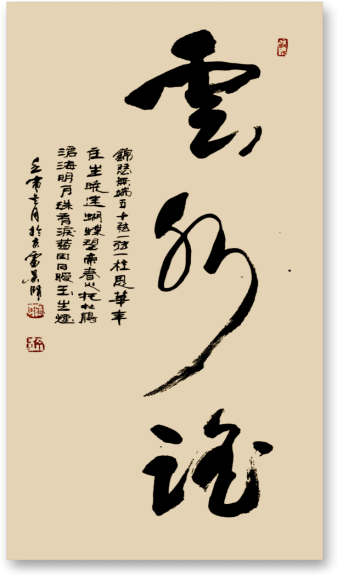 雲水謠
錦瑟無端五十弦一弦一柱思華年
庄生曉迷蝴蝶望帝春心托杜鵑
滄海明月珠有淚藍田日暖玉生煙
壬寅月於京雷